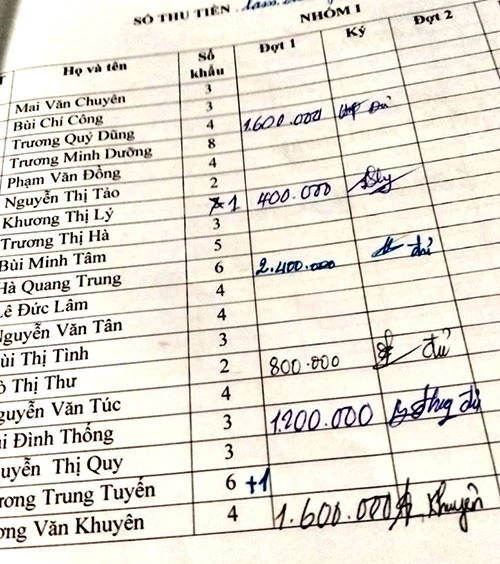 SỔ THU TIỀN
NHÓM 1
Họ và tên Số khẩu Đợt 1 Ký Đợt 2
Mai Văn Chuyên 3
Bùi Chí Công 3
Trương Quý Dũng 4 1.600.000 đủ
Trương Minh Dưỡng 8
Phạm Văn Đồng 4
Nguyễn Thị Tảo 2
Khương Thị Lý 1 400.000
Trương Thị Hà 3
Bùi Minh Tâm 5
Hà Quang Trung 6 2.400.000 đủ
Lê Đức Lâm 4
Nguyễn Văn Tân 4
ùi Thị Tình 3
Thị Thư 2 800.000 đủ
guyễn Văn Túc 4
i Đình Thống 3 1.200.000 đủ
uyễn Thị Quy 3
ương Trung Tuyến 6 +1
ơng Văn Khuyên 4 1.600.000 Khuyên